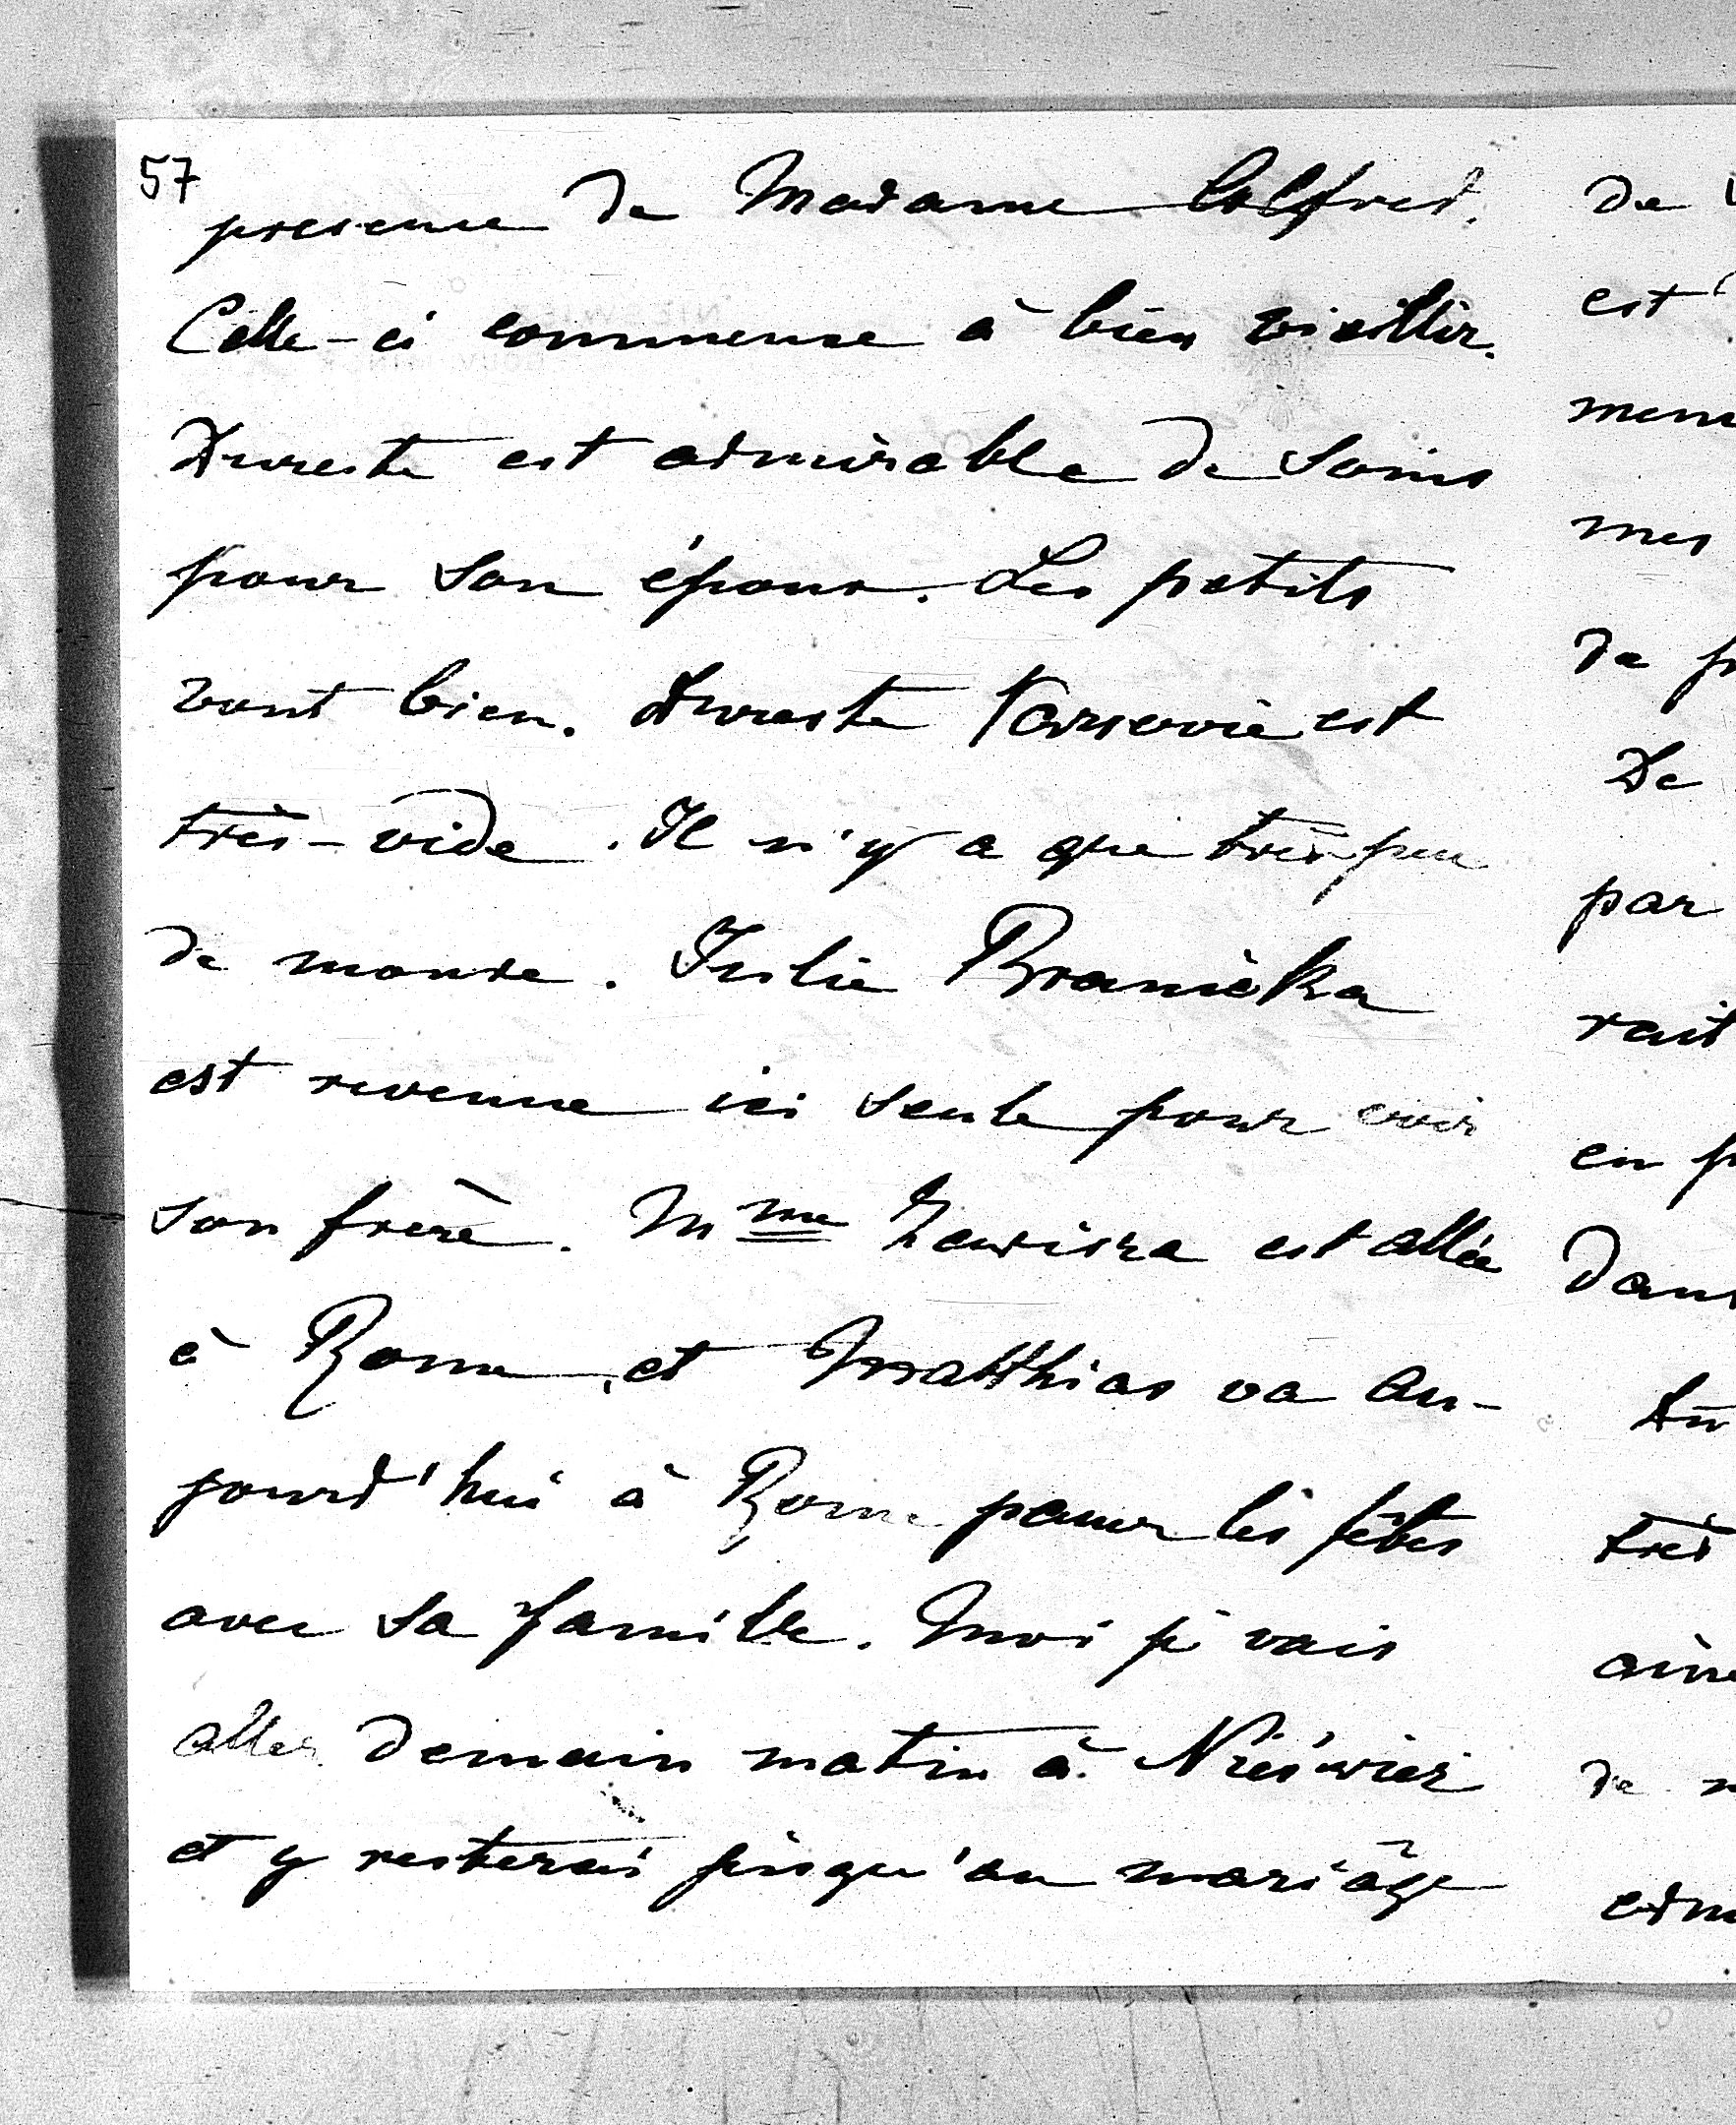 57
presence de Madame Alfred.
Celle-ci commence à bien vieillir.
Dureste est admirable de soins
pour son époux. Les petits
vont bien. Dureste Varsovie est
très-vide. Il n'y a que très peu
de monde. Julie Branicka
est revenue ici seule pour voir
son frère. Mme Zawisza est allée
à Rome, et Matthias va au-
jourd'hui à Rome passer les fêtes
avec sa famille. Moi je vais
aller demain matin à Nieśwież
et y resterai jusqu'au mariage
de
est
mes
de
De
par
rait
en
dans
très
de